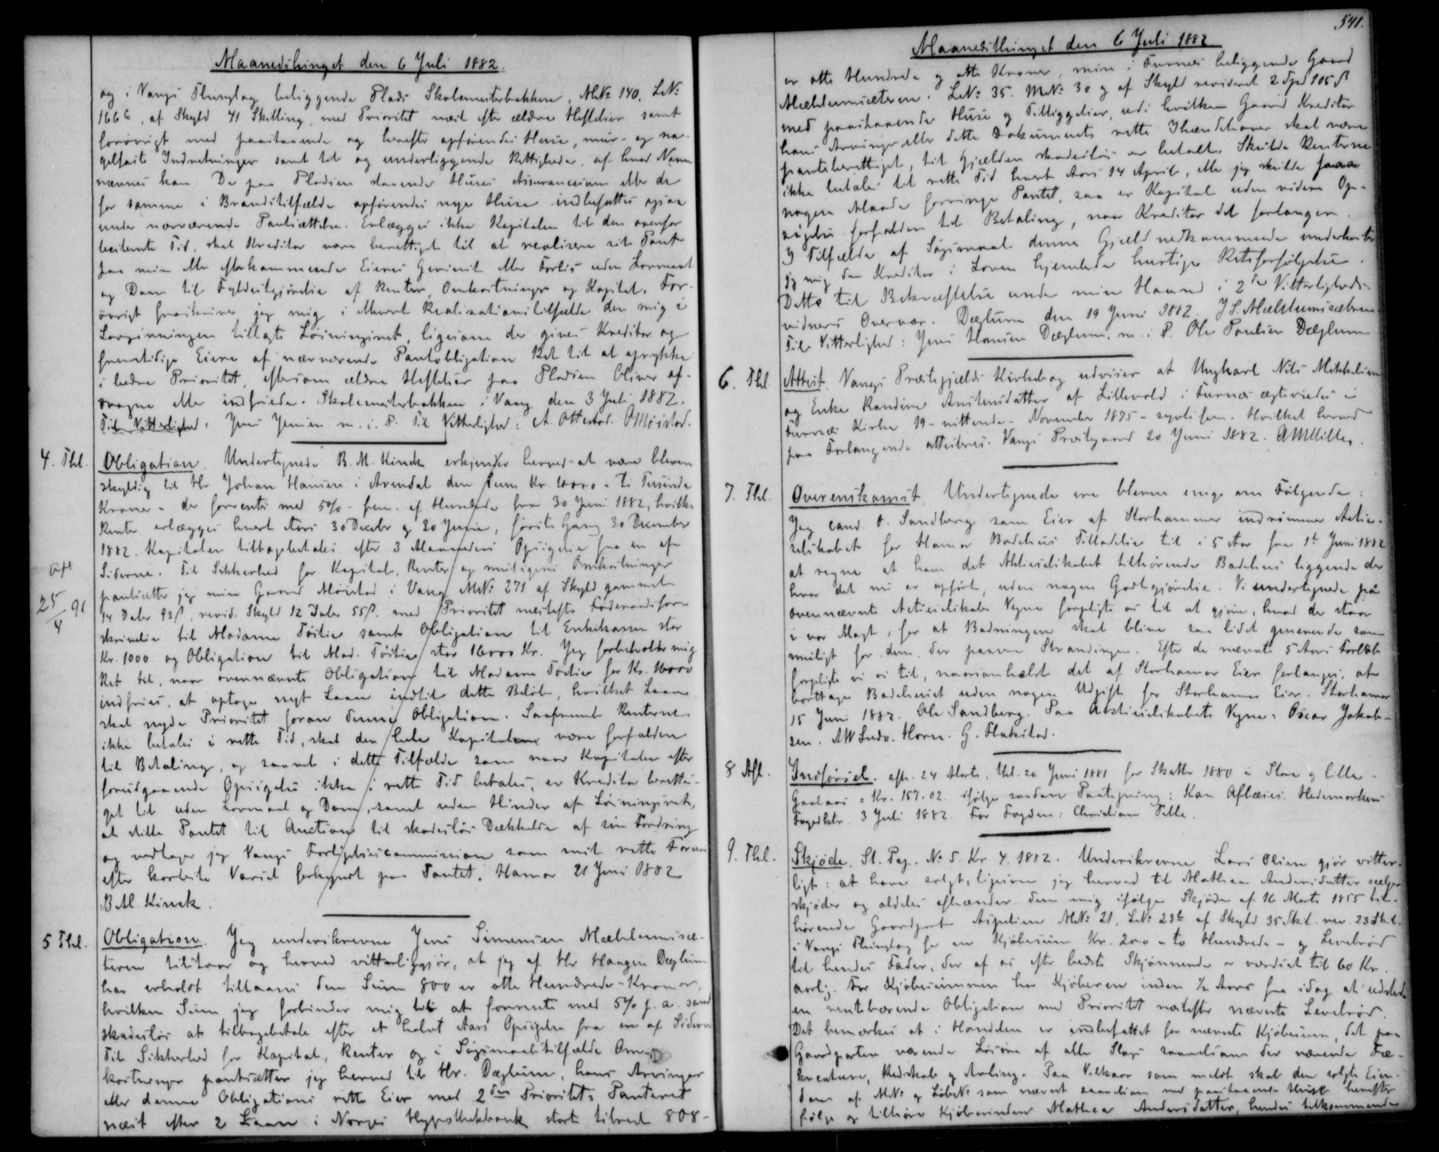 Maanedsthinget den 6 Juli 1882.
og i Vangs Thinglag beliggende Plads Skolemesterbakken, M.No 140, L.No
166 b, af Skyld 41 Skilling, med Prioritet næst efter ældre Heftelser samt
forøvrigt med paastaaende og herefter opførendes Huse, mur- og na-
gelfaste Indretninger samt til og underliggende Rettigheder, af hvad Navn
nævnes kan. De paa Pladsen staaende Huses Assurancesum eller de
for samme i Brandstilfælde opførendes nye Huse indbefattes ogsaa
under nærværende Pantsættelse. Erlægges ikke Kapitalen til den ovenfor
bestemte Tid, skal Kreditor være berettiget til at realisere sit Pant
paa min eller efterkommende Eieres Gevinst eller Forlis uden Lovmaal
og Dom til Fyldestgjørelse af Renter, Omkostninger og Kapital. For-
øvrigt fraskriver jeg mig i ethvert Realisationstilfælde den mig i
Lovgivningen tillagte Løsningsret, ligesom der gives Kreditor og
fremtidige Eiere af nærværende Pantobligation Ret til at oprykke
i bedre Prioritet, eftersom ældre Heftelser paa Pladsen bliver af-
dragne eller indfriede. Skolemesterbakken i Vang den 3 Juli 1882.
Til Vitterlighed: Jens Jensen m. i. P. Til Vitterlighed: A. Ottestad. O Møistad.
4. Thl. Obligation. Undertegnede B. M. Kinck erkjender herved at være bleven
skyldig til Hr Johan Hansen i Arendal den Sum Kr. 10000 - Ti Tusinde
Kroner - der forrentes med 5% - fem af Hundrede fra 30 Juni 1882, hvilke
Renter erlægges hvert Aars 30 Decbr og 30 Juni, første Gang 30 December
1882. Kapitalen tilbagebetales efter 3 Maaneders Opsigelse fra en af
Siderne. Til Sikkerhed for Kapital, Renter og mulige Omkostninger
pantsætter jeg min Gaard Møistad i Vang M.No 271 af Skyld gammel
14 Daler 93 ß, revid. Skyld 12 Daler 55 ß. med Prioritet næstefter Føderaadsfor-
skrivelse til Madame Tøitie samt Obligation til Enkekassen stor
Kr. 1000 og Obligation til Mad. Tøitie stor 16000 Kr. Jeg forbeholder mig
Ret til, naar ovennævnte Obligation til Madame Tøitie for Kr. 16000
indfries, at optage nyt Laan indtil dette Beløb, hvilket Laan
skal nyde Prioritet foran denne Obligation. Saafremt Renterne
ikke betales i rette Tid, skal den hele Kapital være forfalden
til Betaling, og saavel i dette Tilfælde som naar Kapitalen efter
forudgaaende Opsigelse ikke i rette Tid betales, er Kreditor beretti-
get til uden Lovmaal og Dom, samt uden Hinder af Løsningsret,
at stille Pantet til Auction til skadesløs Dækkelse af sin Fordring
og vedtager jeg Vangs Forligelsescommission som mit rette Forum
efter korteste Varsel forkyndt paa Pantet. Hamar 21 Juni 1882
B. M. Kinck.
afl
25/4 91
5 Thl. Obligation. Jeg underskrevne Jens Simensen Mæhlumsæ-
teren tilstaar og herved vitterliggjør, at jeg af Hr Haagen Dæhlum
har erholdt tillaans den Sum 800 er otte Hundrede Kroner,
hvilken Sum jeg forbinder mig til at forrente med 5% p. a. samt
skadesløs at tilbagebetale efter et halvt Aars Opsigelse fra en af Siderne
Til Sikkerhed for Kapital, Renter og i Søgsmaalstilfælde Om-
kostninger pantsætter jeg herved til Hr. Dæhlum, hans Arvinger
eller denne Obligations rette Eier med 2den Prioritets Panteret
næst efter 2 Laan i Norges Hypothekbank stort tilrest 808-
541.
Maanedsthinget den 6 Juli 1882.
er otte Hundrede og otte Kroner, min i Furnæs beliggende Gaard
Mæhlumsæteren. L.No 35. M.No 30 og af Skyld revideret 2 Spd 105 ß
med paastaaende Huse og Tilliggelser, udi hvilken Gaard Kreditor
hans Arvinger eller dette Dokuments rette Ihændehaver skal være
panteberettiget, til Gjælden skadesløs er betalt. Skulde Renterne
ikke betales til rette Tid hvert Aars 14 April, eller jeg skulde paa
nogen Maade forringe Pantet, saa er Kapital uden videre Op-
sigelse forfalden til Betaling, naar Kreditor det forlanger.
I Tilfælde af Søgsmaal denne Gjæld vedkommende underkaster
jeg mig den Kreditor i Loven hjemlede hurtige Retsforfølgelse.
Dette til Bekræftelse under min Haand i 2de Vitterligheds-
vidners Overvær. Dæhlum den 19 Juni 1882. J S. Mæhlumsæteren
Til Vitterlighed: Jens Hansen Dæhlum. m. i P. Ole Paulsen Dæhlum
6. Thl. Attest. Vangs Præstegjælds Kirkebog udviser at Ungkarl Nils Mikkelsen
og Enke Randine Amundsdatter af Lillevold i Furnæs ægteviedes i
Furnæs Kirke 19 - nittende - November 1875 - sytti fem. Hvilket herved
paa Forlangende attesteres. Vangs Præstegaard 20 Juni 1882. A Miller.
7. Thl. Overenskomst. Undertegnede ere blevne enige om Følgende:
Jeg cand. O. Sandberg som Eier af Storhamar indrømmer Actie-
selskabet for Hamar Badehus Tilladelse til i 5 Aar fra 1ste Juni 1882
at regne at have det Aktieselskabet tilhørende Badehus liggende der
hvor det nu er opført, uden nogen Godtgjørelse. Vi undertegnede paa
ovennævnte Actieselskabs Vegne forpligte os til at gjøre, hvad der staar
i vor Magt, for at Badningen skal blive saa lidet generende som
muligt for dem, der passere Strandingen. Efter de nævnte 5 Aars Forløb
forpligte vi os til, naarsomhelst det af Storhamar Eier forlanges, at
borttage Badehuset uden nogen Udgift for Storhamar Eier. Storhamar
15 Juni 1882. Ole Sandberg. Paa Actieselskabets Vegne: Oscar Jakob-
sen. A W Ludv. Horn. G. Flakstad.
8 Afl. Indførsel. afh. 24 Marts, thl. 20 Juni 1881 for Skatter 1880 i Store og Lille
Gaalaas : Kr. 157.02 ifølge saadan Paategning: Kan Aflæses. Hedemarkens
Fogedktr. 3 Juli 1882. For Fogden: Christian Pelle.
9. Thl. Skjøde. St. Pap. No 5. Kr. 4. 1882. Underskrevne Lars Olsen gjør vitter-
ligt: at have solgt, ligesom jeg herved til Mathea Andersdatter sælger
skjøder og aldeles afhænder den mig ifølge Skjøde af 16 Marts 1855 til-
hørende Gaardpart Aspelien M.No 21. L.No 23 b af Skyld 35 Skil. rev. 23 Skil.
i Vangs Thinglag for en Kjøbesum Kr. 200 - to Hundrede - og Levebrød
til hendes Fader, der af os efter bedste Skjønnende er værdsat til 60 Kr.
aarlig. For Kjøbesummen har Kjøberen inden 1/2 Aars fra idag at udstede
en rentebærende Obligation med Prioritet næstefter nævnte Levebrød.
Det bemærkes at i Handelen er indbefattet for nævnte Kjøbesum, det paa
Gaardparten værende Løsøre af alle Slags saavelsom der værende Fæ-
kreature, Redskab og Avling. Paa Vilkaar som meldt skal den solgte Eien-
dom af M.No og Løbe No som nævnt saavelsom med paastaaende Huse herefter
følge og tilhøre Kjøberinden Mathea Andersdatter, hendes tilkommende